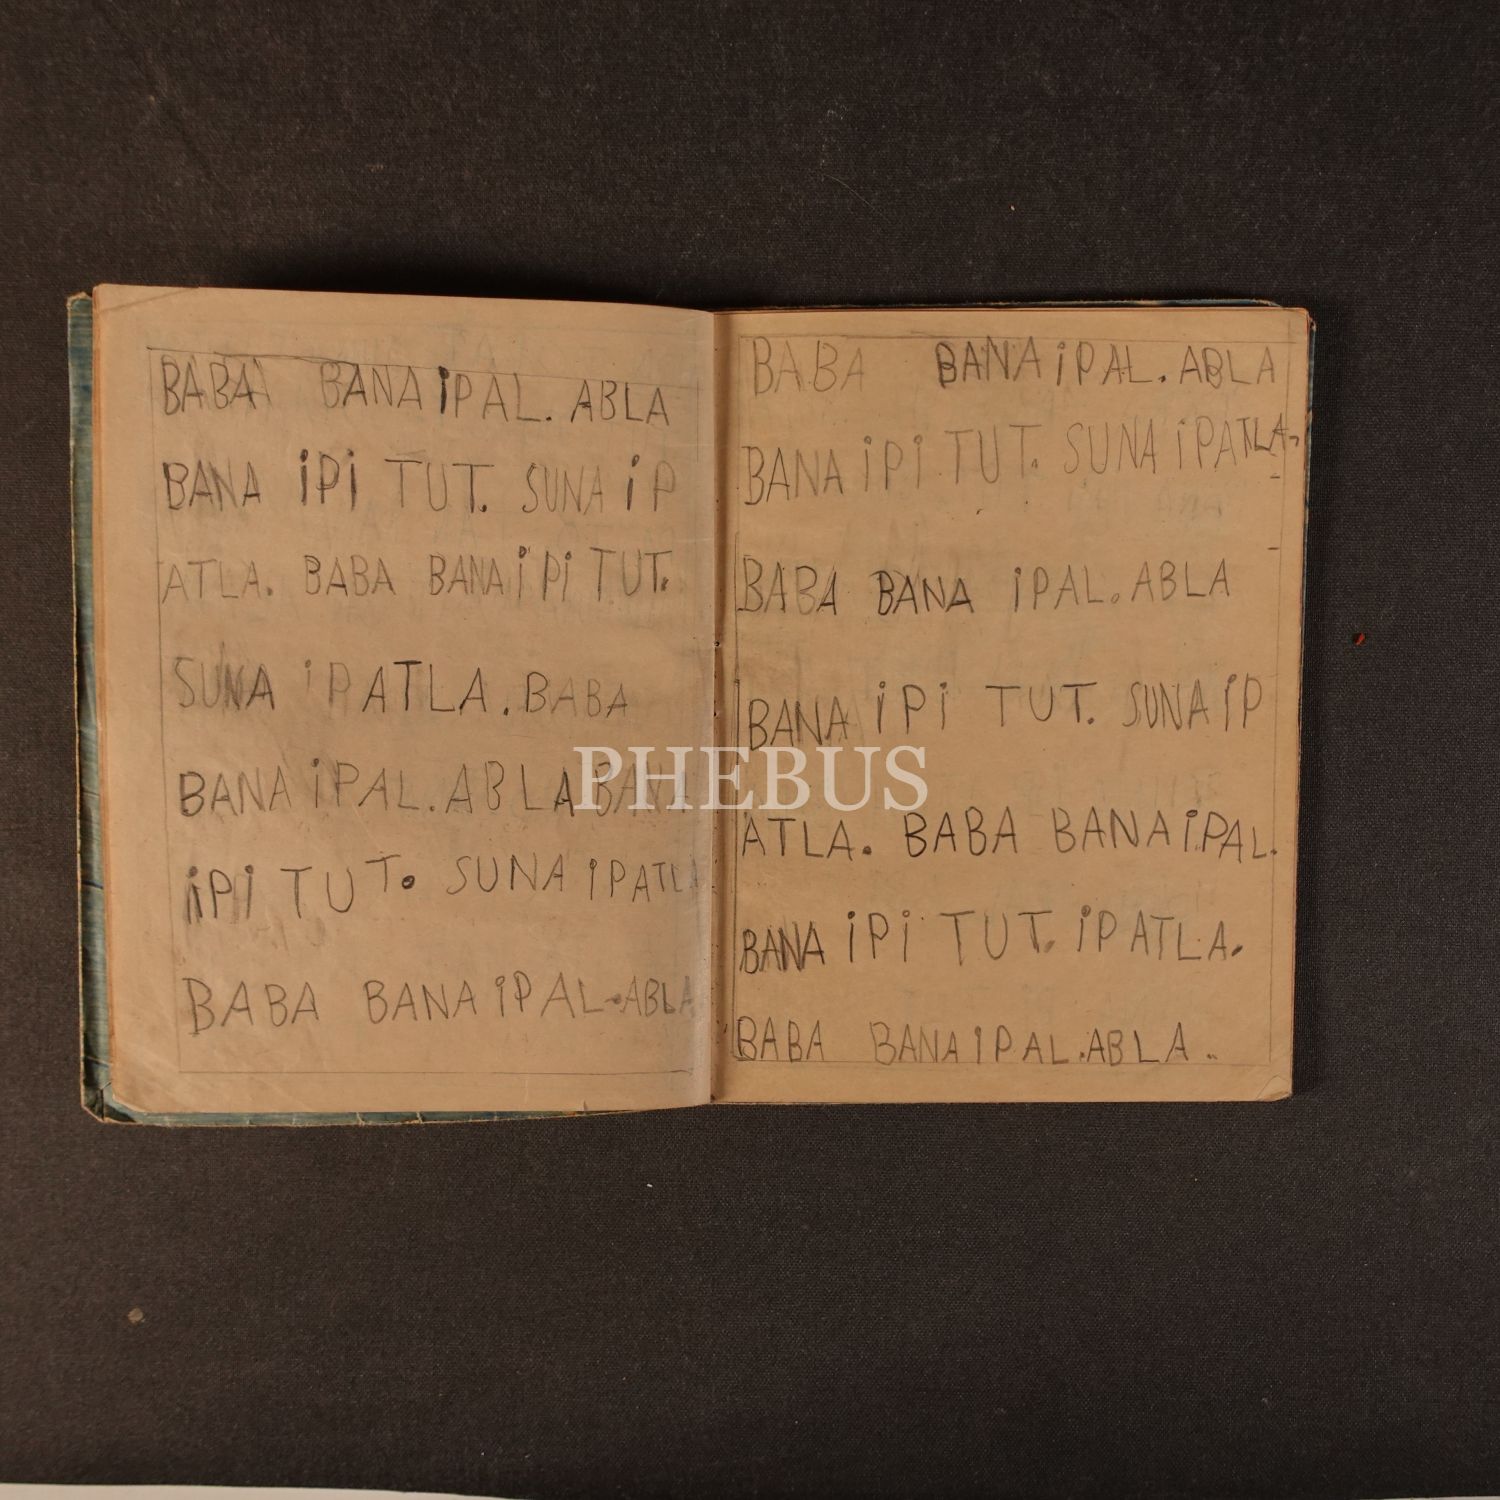 BABA BANA İPAL. ABLA
BANA İPİ TUT. SUNA İP
ATLA. BABA BANA İPİ TUT.
SUNA İPATLA. BABA
BANA İPAL. ABLA BANA
İPİ TUT. SUNA İPATLA
BABA BANA İPAL. ABLA
BABA BANA İPAL. ABLA
BANA İPİ TUT. SUNA İPATLA.
BABA BANA İPAL. ABLA
BANA İPİ TUT. SUNA İP
ATLA. BABA BANA İPAL.
BANA İPİ TUT. İPATLA.
BABA BANA İPAL. ABLA..
PHEBUS